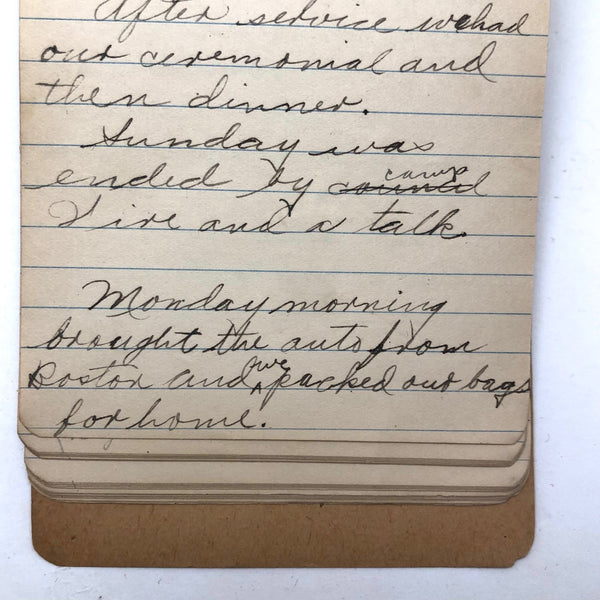 After service we had
our ceremonial and
then dinner.
Sunday was
camp
ended by council
Fire and a talk
Monday morning
brought the auto from
we
Boston and ^ packed our bags
for home.